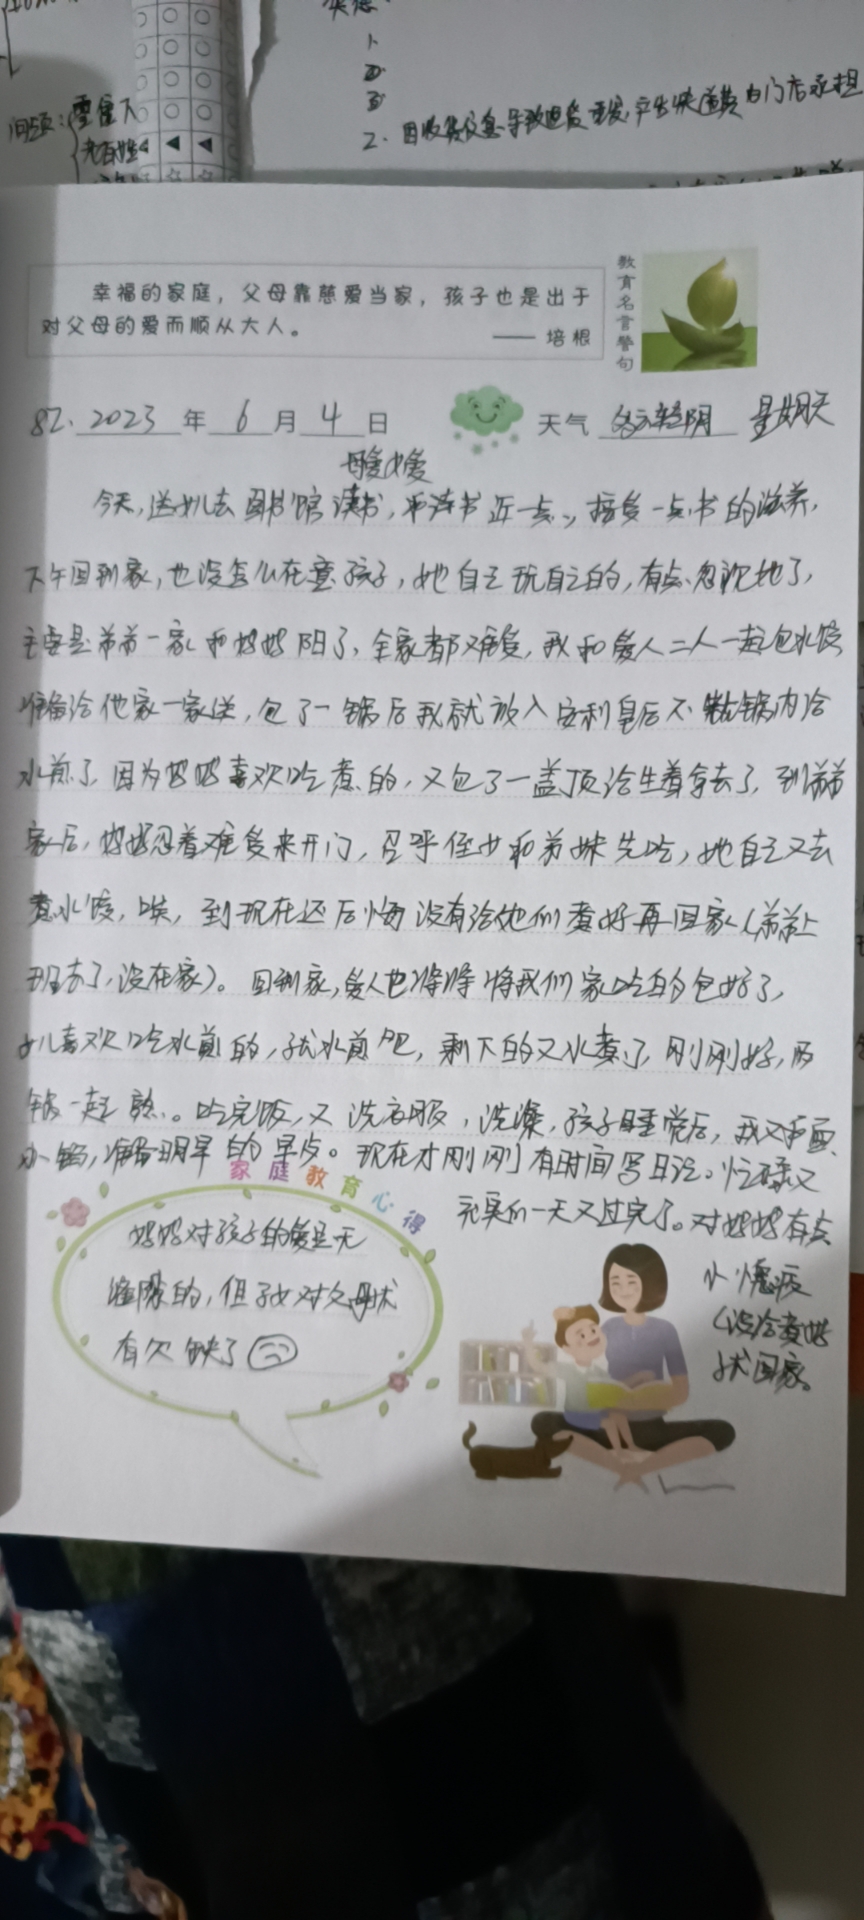 问题：
2.
幸福的家庭，父母靠慈爱当家，孩子也是出于
对父母的爱而顺从大人。
—— 培根
教育名言警句
82. 2023 年 6 月 4 日 天气 多云转阴 星期天
母爱女爱
今天，送女儿去图书馆读书，离读书近一点，接受一点书的滋养，
下午回到家，也没怎么在意孩子，她自己玩自己的，有点忽视她了，
主要是弟弟一家和妈妈阳了，全家都难受，我和爱人二人一起包水饺
准备给他家一家送，包了一锅后我就放入安利皇后不粘锅内给
水煎了，因为妈妈喜欢吃煮的，又包了一盖顶给生着拿去了，到弟弟
家后，妈妈忍着难受来开门，召呼侄女和弟妹先吃，她自己又去
煮水饺，唉，到现在还后悔没有给她们煮好再回家（弟弟上
班去了，没在家）。回到家，爱人也将将将我们家吃的包好了，
女儿喜欢吃水煎的，就水煎吧，剩下的又水煮了，刚刚好，两
锅一起熟。吃完饭，又洗衣服，洗澡，孩子睡觉后，我又
小锅，准备明早的早点。现在才刚刚有时间写日记。忙碌又
充实的一天又过完了。对妈妈有点
小愧疚
（没给煮好
就回家。
家庭教育心得
妈妈对孩子的爱是无
的，但子女对父母就
有欠缺了